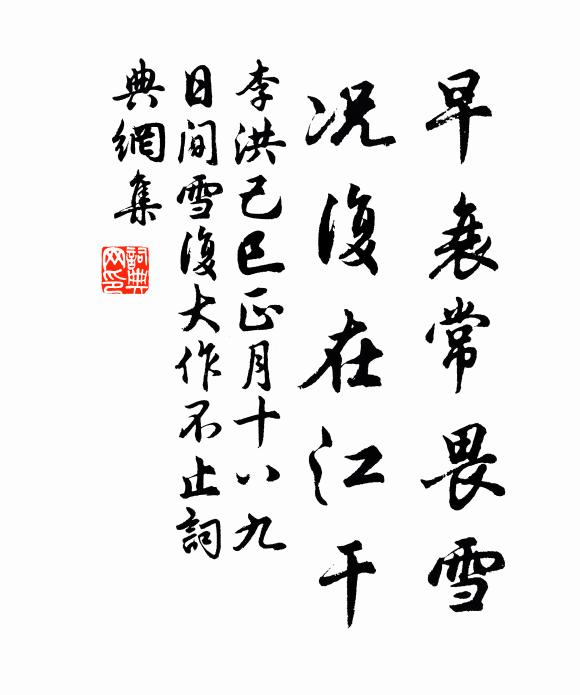 早衰常畏雪
况復在江干
李洪己巳正月十八九
日间雪復大作不止詞
典網集
詞典
网印